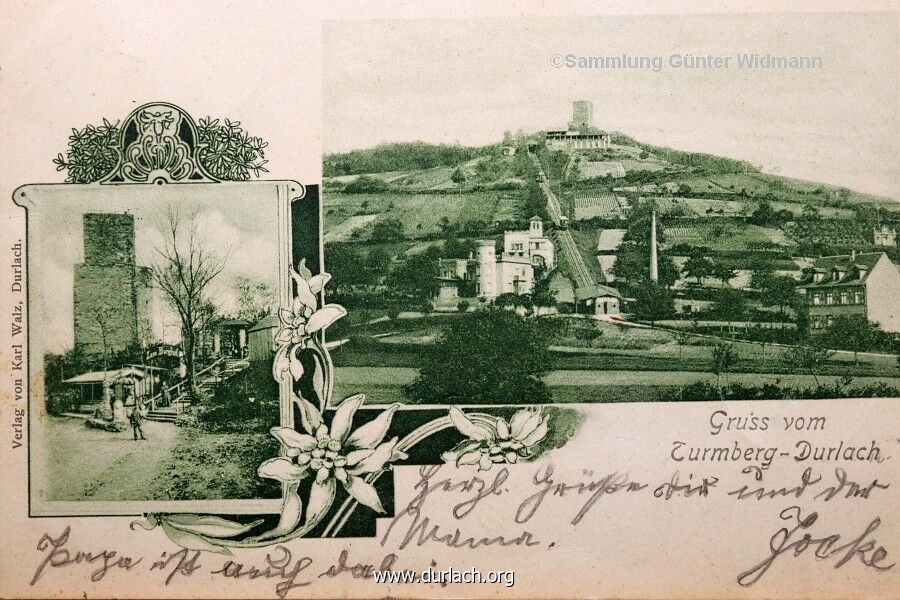 ©Sammlung Günter Widmann
Verlag von Karl Walz, Durlach.
Gruss vom
Turmberg-Durlach.
Herzl. Grüße dir und der
Mama.
Jocke
Papa ist auch da
www.durlach.org